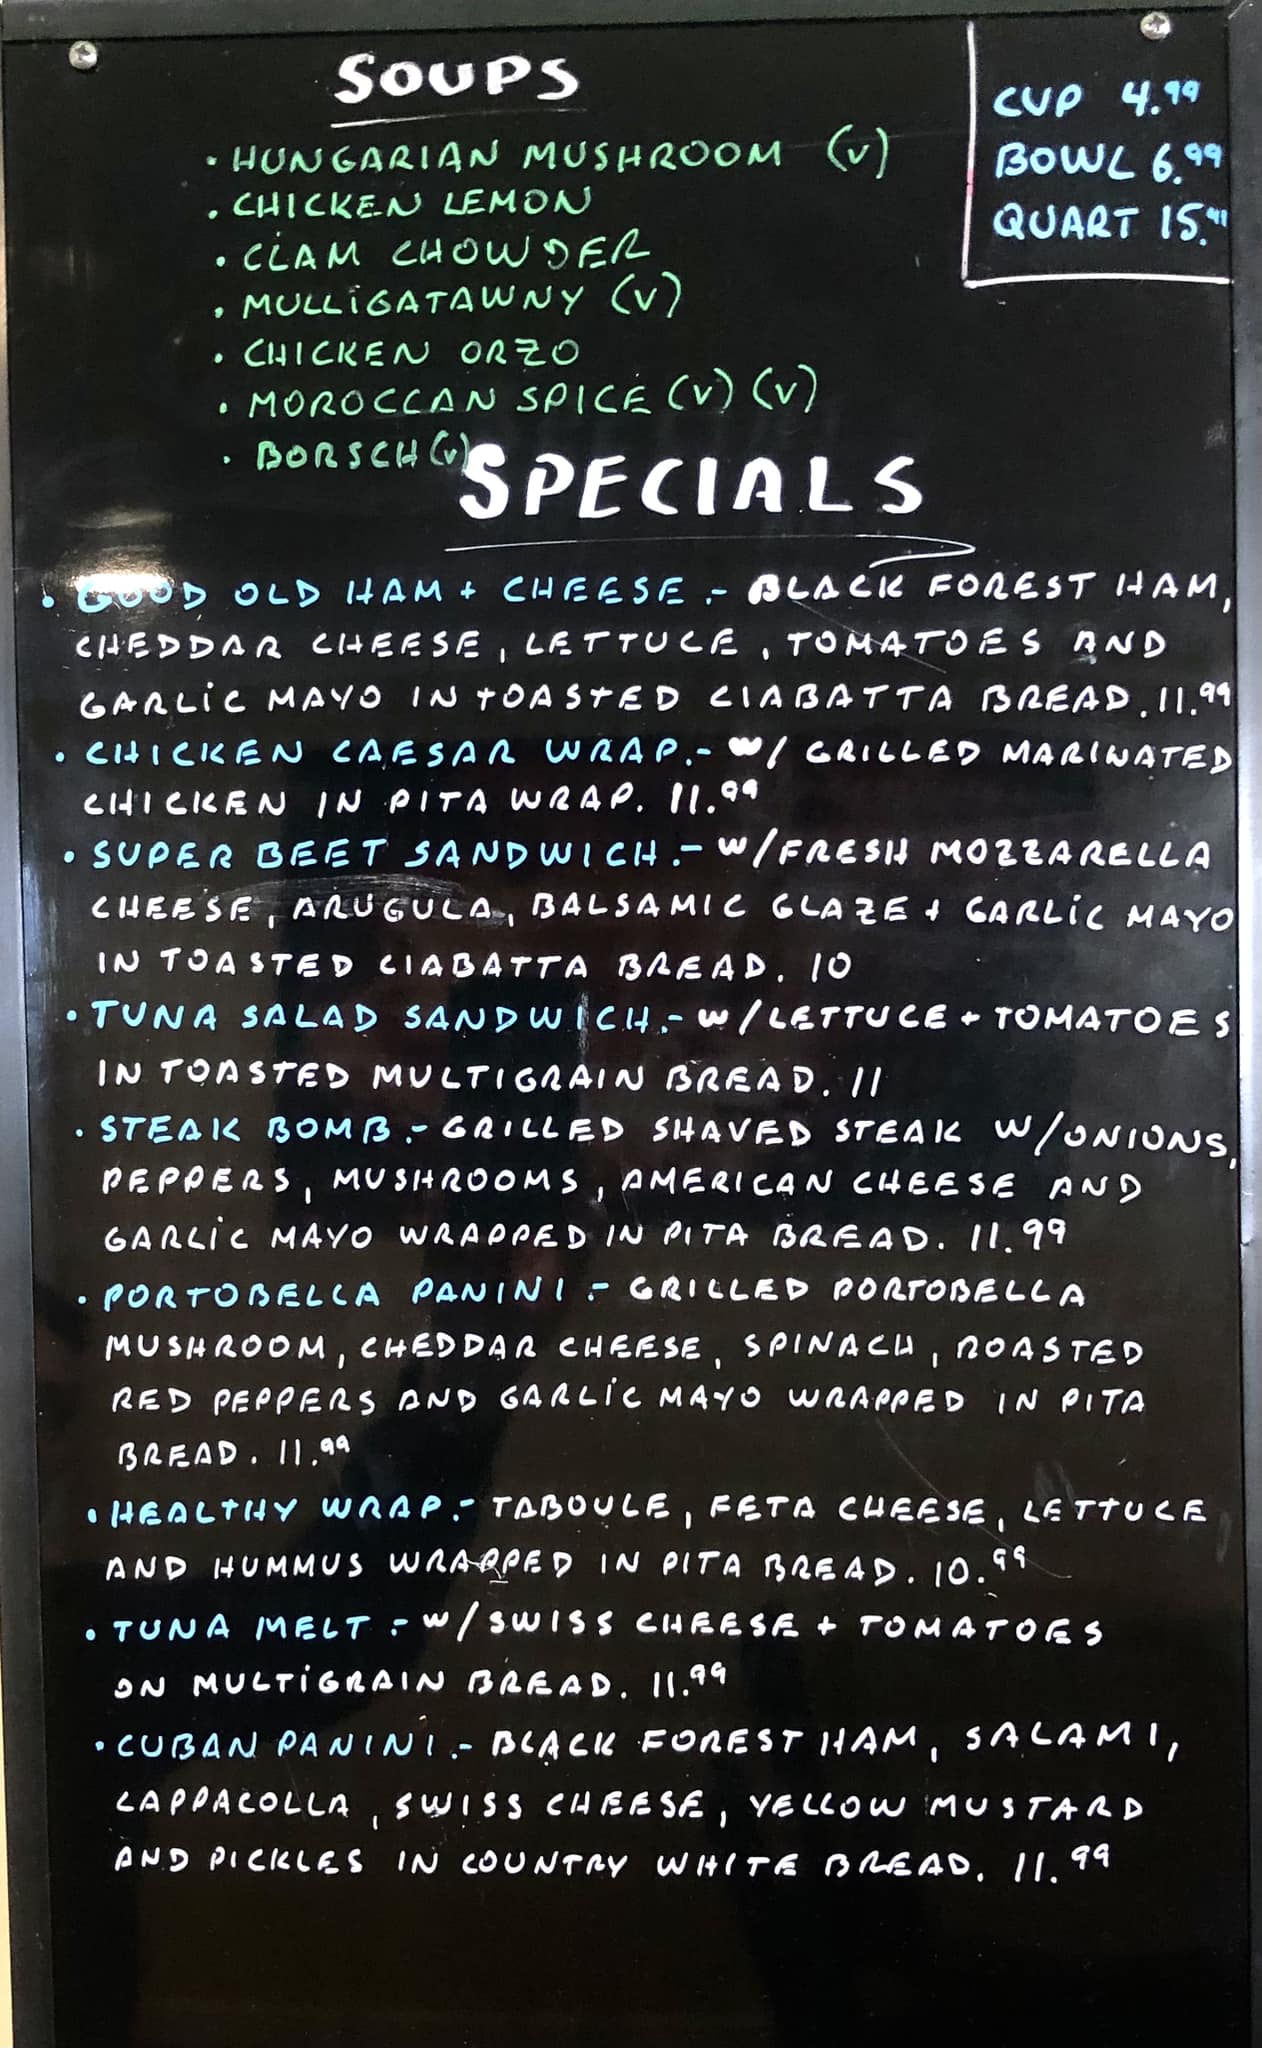 SOUPS
CUP 4.99
BOWL 6.99
QUART 15.
• HUNGARIAN MUSHROOM (V)
• CHICKEN LEMON
• CLAM CHOWDER
• MULLIGATAWNY (V)
• CHICKEN ORZO
• MOROCCAN SPICE (V) (V)
• BORSCH (V)
SPECIALS
• GOOD OLD HAM + CHEESE.- BLACK FOREST HAM,
CHEDDAR CHEESE, LETTUCE, TOMATOES AND
GARLIC MAYO IN TOASTED CIABATTA BREAD. 11.99
• CHICKEN CAESAR WRAP.- W/ GRILLED MARINATED
CHICKEN IN PITA WRAP. 11.99
• SUPER BEET SANDWICH.- W/FRESH MOZZARELLA
CHEESE, ARUGULA, BALSAMIC GLAZE + GARLIC MAYO
IN TOASTED CIABATTA BREAD. 10
• TUNA SALAD SANDWICH.- W/LETTUCE + TOMATOES
IN TOASTED MULTIGRAIN BREAD. 11
• STEAK BOMB.- GRILLED SHAVED STEAK W/ONIONS,
PEPPERS, MUSHROOMS, AMERICAN CHEESE AND
GARLIC MAYO WRAPPED IN PITA BREAD. 11.99
• PORTOBELLA PANINI.- GRILLED PORTOBELLA
MUSHROOM, CHEDDAR CHEESE, SPINACH, ROASTED
RED PEPPERS AND GARLIC MAYO WRAPPED IN PITA
BREAD. 11.99
• HEALTHY WRAP.- TABOULE, FETA CHEESE, LETTUCE
AND HUMMUS WRAPPED IN PITA BREAD. 10.99
• TUNA MELT.- W/SWISS CHEESE + TOMATOES
ON MULTIGRAIN BREAD. 11.99
• CUBAN PANINI.- BLACK FOREST HAM, SALAMI,
CAPPACOLLA, SWISS CHEESE, YELLOW MUSTARD
AND PICKLES IN COUNTRY WHITE BREAD. 11.99